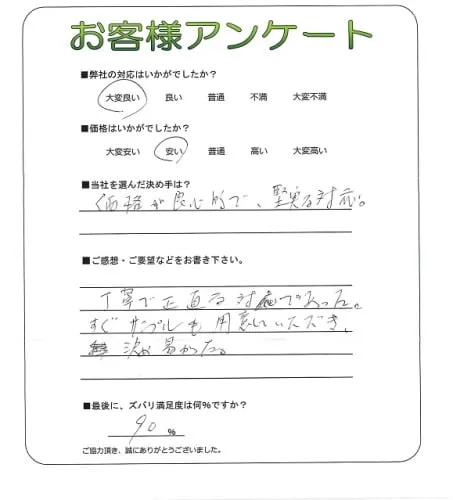 お客様アンケート
■弊社の対応はいかがでしたか？
大変良い 良い 普通 不満 大変不満
■価格はいかがでしたか？
大変安い 安い 普通 高い 大変高い
■当社を選んだ決め手は？
価格が良心的で、堅実な対応。
■ご感想・ご要望などをお書き下さい。
丁寧で正直な対応であった。
すぐサンプルも用意していただき、
決め易かった。
■最後に、ズバリ満足度は何％ですか？
90 %
ご協力頂き、誠にありがとうございました。